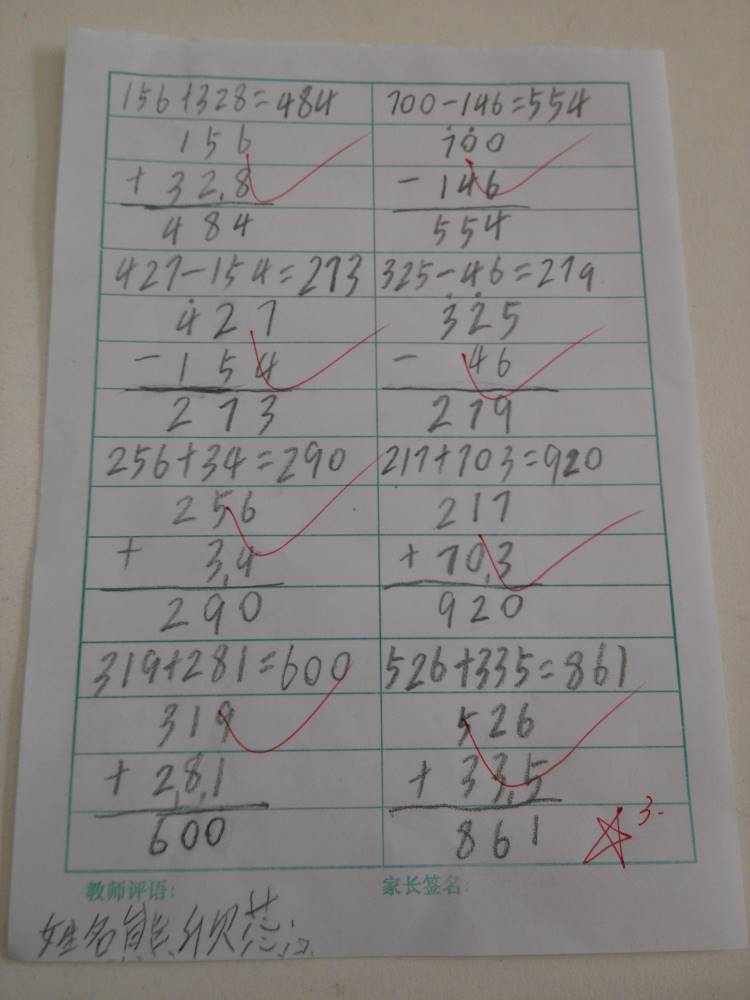 156+328=484 700-146=554
156 700
+ 328 - 146
484 554
427-154=273 325-46=279
427 325
- 154 - 46
273 279
256+34=290 217+703=920
256 217
+ 34 + 703
290 920
319+281=600 526+335=861
319 526
+ 281 + 335
600 861
3.
教师评语: 家长签名:
姓名熊